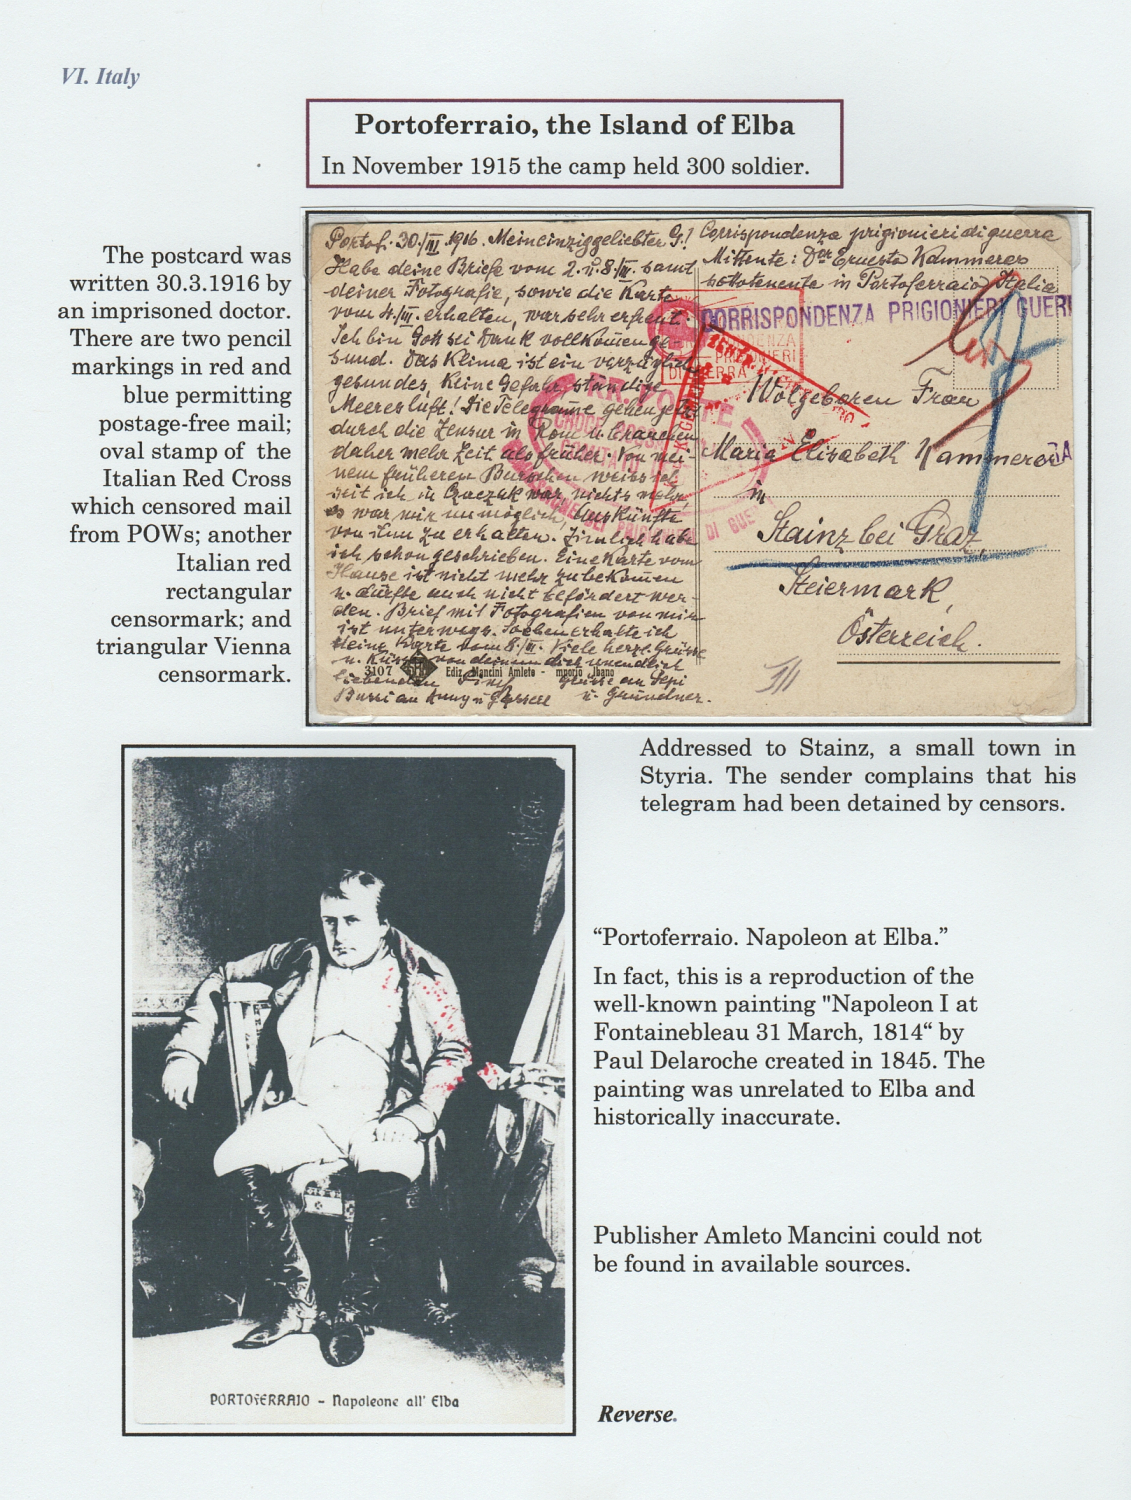 VI. Italy
Portoferraio, the Island of Elba
In November 1915 the camp held 300 soldier.
The postcard was
written 30.3.1916 by
an imprisoned doctor.
There are two pencil
markings in red and
blue permitting
postage-free mail;
oval stamp of the
Italian Red Cross
which censored mail
from POWs; another
Italian red
rectangular
censormark; and
triangular Vienna
censormark.
Portof. 30./III. 1916. Meineinziggeliebter G.!
Habe deine Briefe vom 2. u. 8./III. samt
deiner Fotografie, sowie die Karte
vom 4./III. erhalten, war sehr erfreut.
Ich bin Gott sei Dank vollkommen ge-
sund. Das Klima ist ein vorzüglich
gesundes, keine Gefahr, ständige
Meeresluft! Die Telegramme gehen jetzt
durch die Zensur in Rom u. brauchen
daher mehr Zeit als früher. Von mei-
nem früheren Burschen weiss ich
seit ich in Čačak war, nichts mehr,
es war mir unmöglich, Auskünfte
von ihm zu erhalten. habe
ich schon geschrieben. Eine Karte vom
Hause ist nicht mehr zu bekommen
u. dürfte auch nicht befördert wer-
den. Brief mit Fotografien von mir
ist unterwegs. Soeben erhalte ich
deine Karte vom 8./III. Viele herzl. Grüsse
u. Küsse von deinem dich unendlich
liebenden Grüsse an Sepi
u.
3107
Ediz. Mancini Amleto - mporio Ilbano
Corrispondenza prigionieri di guerra
Mittente: Dr Ernesto Kammerer
sottotenente in Portoferraio, Italia
CORRISPONDENZA PRIGIONIERI GUERR
Wolgeboren Frau
Maria Elisabeth Kammerer
in
Stainz bei Graz,
Steiermark,
Österreich.
CROCE ROSSA
PRIGIONIERI DI GUE
Addressed to Stainz, a small town in
Styria. The sender complains that his
telegram had been detained by censors.
“Portoferraio. Napoleon at Elba.”
In fact, this is a reproduction of the
well-known painting "Napoleon I at
Fontainebleau 31 March, 1814“ by
Paul Delaroche created in 1845. The
painting was unrelated to Elba and
historically inaccurate.
Publisher Amleto Mancini could not
be found in available sources.
PORTOFERRAIO - Napoleone all' Elba
Reverse.